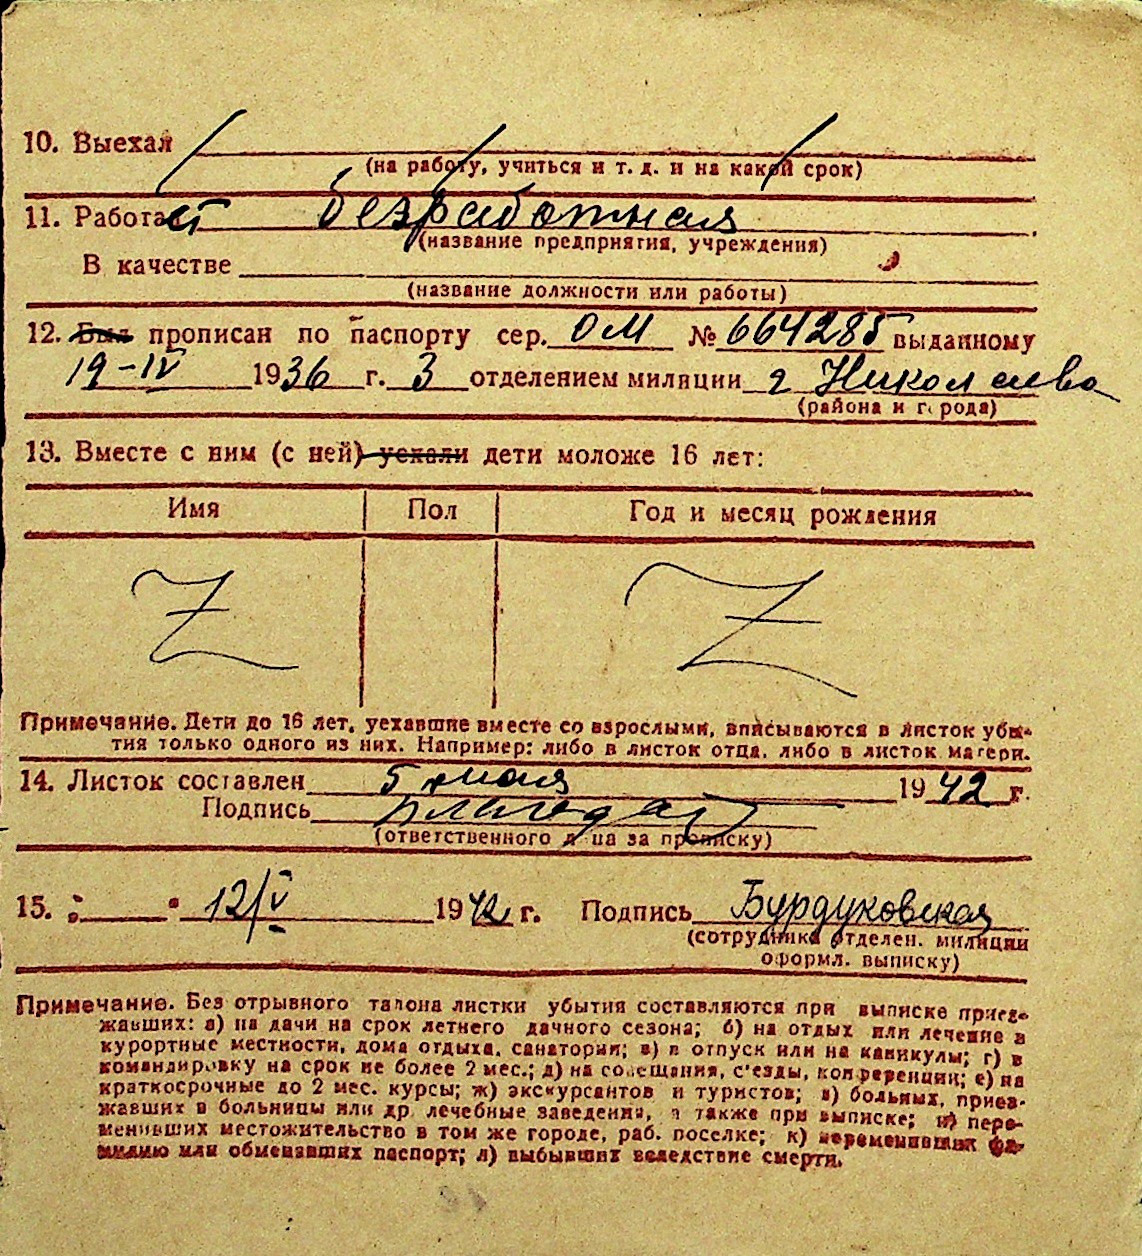 10. Выехал
(на работу, учиться и т. д. и на какой срок)
11. Работает безработная
(название предприятия, учреждения)
В качестве
(название должности или работы)
12. Был прописан по паспорту сер. ОМ № 664285 выданному
19-IV 1936 г. 3 отделением милиции г Николаева
(района и города)
13. Вместе с ним (с ней) уехали дети моложе 16 лет:
Имя Пол Год и месяц рождения
Z Z
Примечание. Дети до 16 лет, уехавшие вместе со взрослыми, вписываются в листок убы-
тия только одного из них. Например: либо в листок отца, либо в листок матери.
14. Листок составлен 5 мая 1942 г.
Подпись
(ответственного лица за прописку)
15. " " 12/V 1942 г. Подпись Бурдуковская
(сотрудника отделен. милиции
оформл. выписку)
Примечание. Без отрывного талона листки убытия составляются при выписке приез-
жавших: а) на дачи на срок летнего дачного сезона; б) на отдых или лечение в
курортные местности, дома отдыха, санатории; в) в отпуск или на каникулы; г) в
командировку на срок не более 2 мес.; д) на совещания, с'езды, конференции; е) на
краткосрочные до 2 мес. курсы; ж) экскурсантов и туристов; з) больных, приез-
жавших в больницы или др. лечебные заведения, а также при выписке; и) пере-
менивших местожительство в том же городе, раб. поселке; к) переменивших фа-
милию или обменявших паспорт; л) выбывших вследствие смерти.